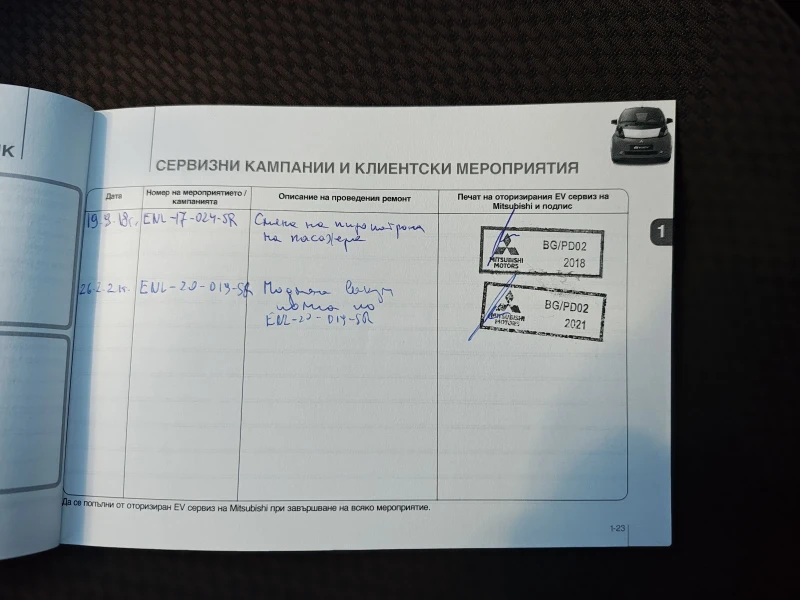 К
СЕРВИЗНИ КАМПАНИИ И КЛИЕНТСКИ МЕРОПРИЯТИЯ
Дата
Номер на мероприятието /
кампанията
Описание на проведения ремонт
Печат на оторизирания EV сервиз на
Mitsubishi и подпис
19.9.18г. ENL-17-024-SR Смяна на пиропатрона
на пасажера
MITSUBISHI
MOTORS
BG/PD02
2018
26.2.21г. ENL-20-019-SR Подмяна вакуум
помпа по
ENL-20-019-SR
MITSUBISHI
MOTORS
BG/PD02
2021
1
Да се попълни от оторизиран EV сервиз на Mitsubishi при завършване на всяко мероприятие.
1-23